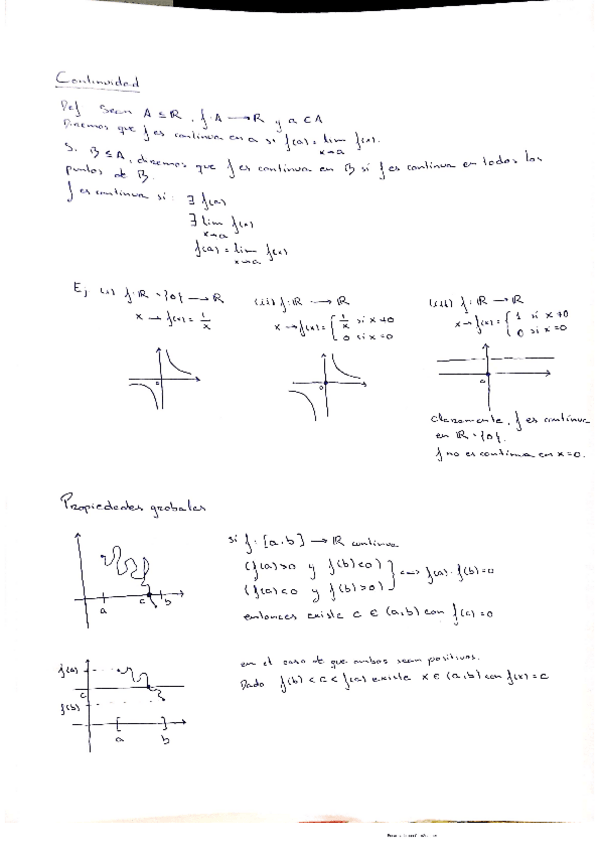 Continuidad
Def Sean A ⊆ ℝ, f: A → ℝ y a ∈ A
Diremos que f es continua en a si f(a) = lim f(x).
x→a
Si B ⊆ A, diremos que f es continua en B si f es continua en todos los
puntos de B.
f es continua si: ∃ f(a)
∃ lim f(x)
x→a
f(a) = lim f(x)
x→a
Ej (i) f: ℝ - {0} → ℝ
x → f(x) = 1/x
(ii) f: ℝ → ℝ
x → f(x) = { 1/x si x ≠ 0
0 si x = 0
(iii) f: ℝ → ℝ
x → f(x) = { 1 si x ≠ 0
0 si x = 0
0
0
0
Claramente, f es continua
en ℝ - {0}.
f no es continua en x = 0.
Propiedades globales
a c b
si f: [a,b] → ℝ continua
(f(a) > 0 y f(b) < 0)
(f(a) < 0 y f(b) > 0) } ⟺ f(a) · f(b) < 0
entonces existe c ∈ (a,b) con f(c) = 0
f(a)
c
f(b)
a b
en el caso de que ambos sean positivos.
Dado f(b) < c < f(a) existe x ∈ (a,b) con f(x) = c